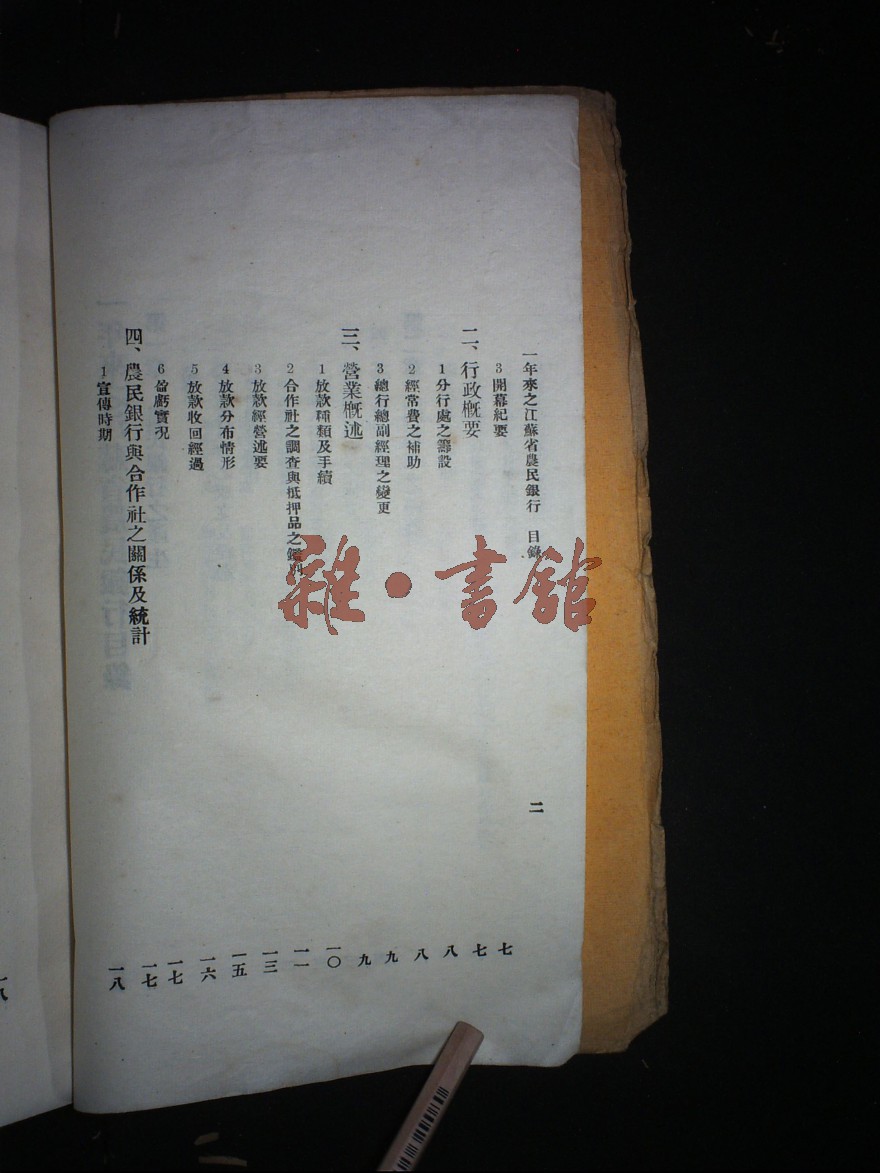 一年來之江蘇省農民銀行 目錄 二
3 開幕紀要 七
二、行政概要 七
1 分行處之籌設 八
2 經常費之補助 八
3 總行總副經理之變更 九
三、營業概述 九
1 放款種類及手續 一〇
2 合作社之調查與抵押品之鑑 一一
3 放款經營述要 一三
4 放款分布情形 一五
5 放款收回經過 一六
6 盈虧實況 一七
四、農民銀行與合作社之關係及統計 一七
1 宣傳時期 一八
雜·書館